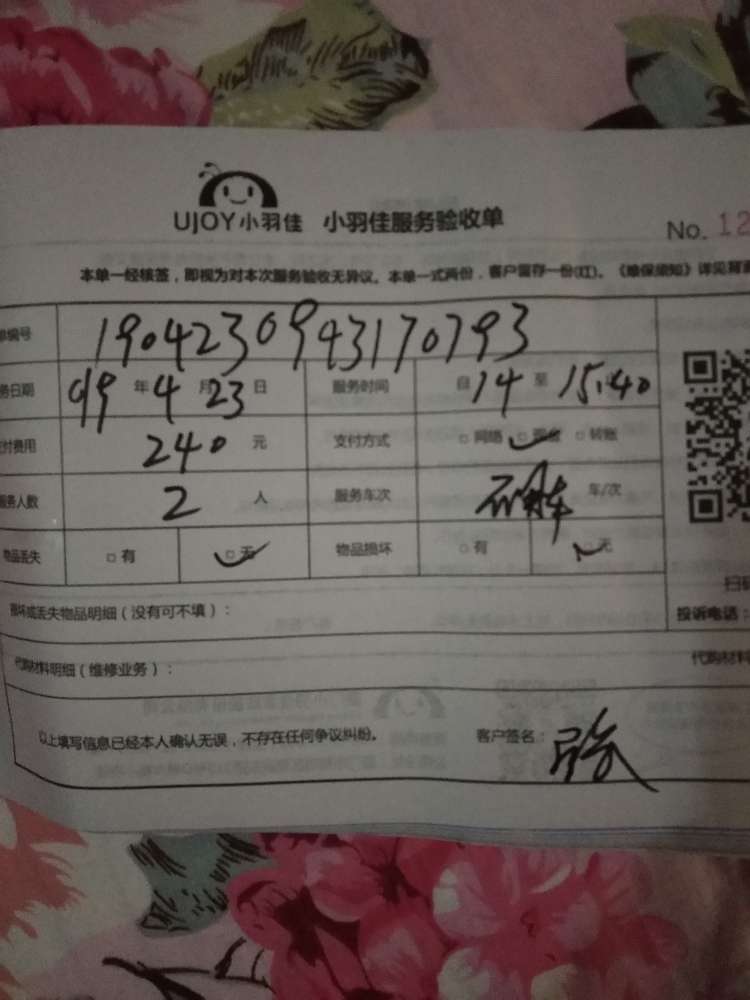 UJOY小羽佳 小羽佳服务验收单
No. 12
本单一经核签，即视为对本次服务验收无异议。本单一式两份，客户留存一份(红)。《维保须知》详见背
单编号 1904230943170793
务日期 年 4 月 23 日 服务时间 自 14 至 15:40
付费用 240 元 支付方式 □ 网络 □ 现金 □ 转账
服务人数 2 人 服务车次 车/次
物品丢失 □ 有 □ 无 物品损坏 □ 有 □ 无
扫码
损坏或丢失物品明细（没有可不填）： 投诉电话：
代购材料明细（维修业务）： 代购材料
以上填写信息已经本人确认无误，不存在任何争议纠纷。 客户签名：